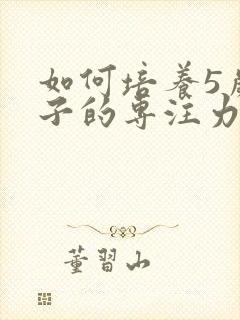 如何培养5
子的专注力
董習山